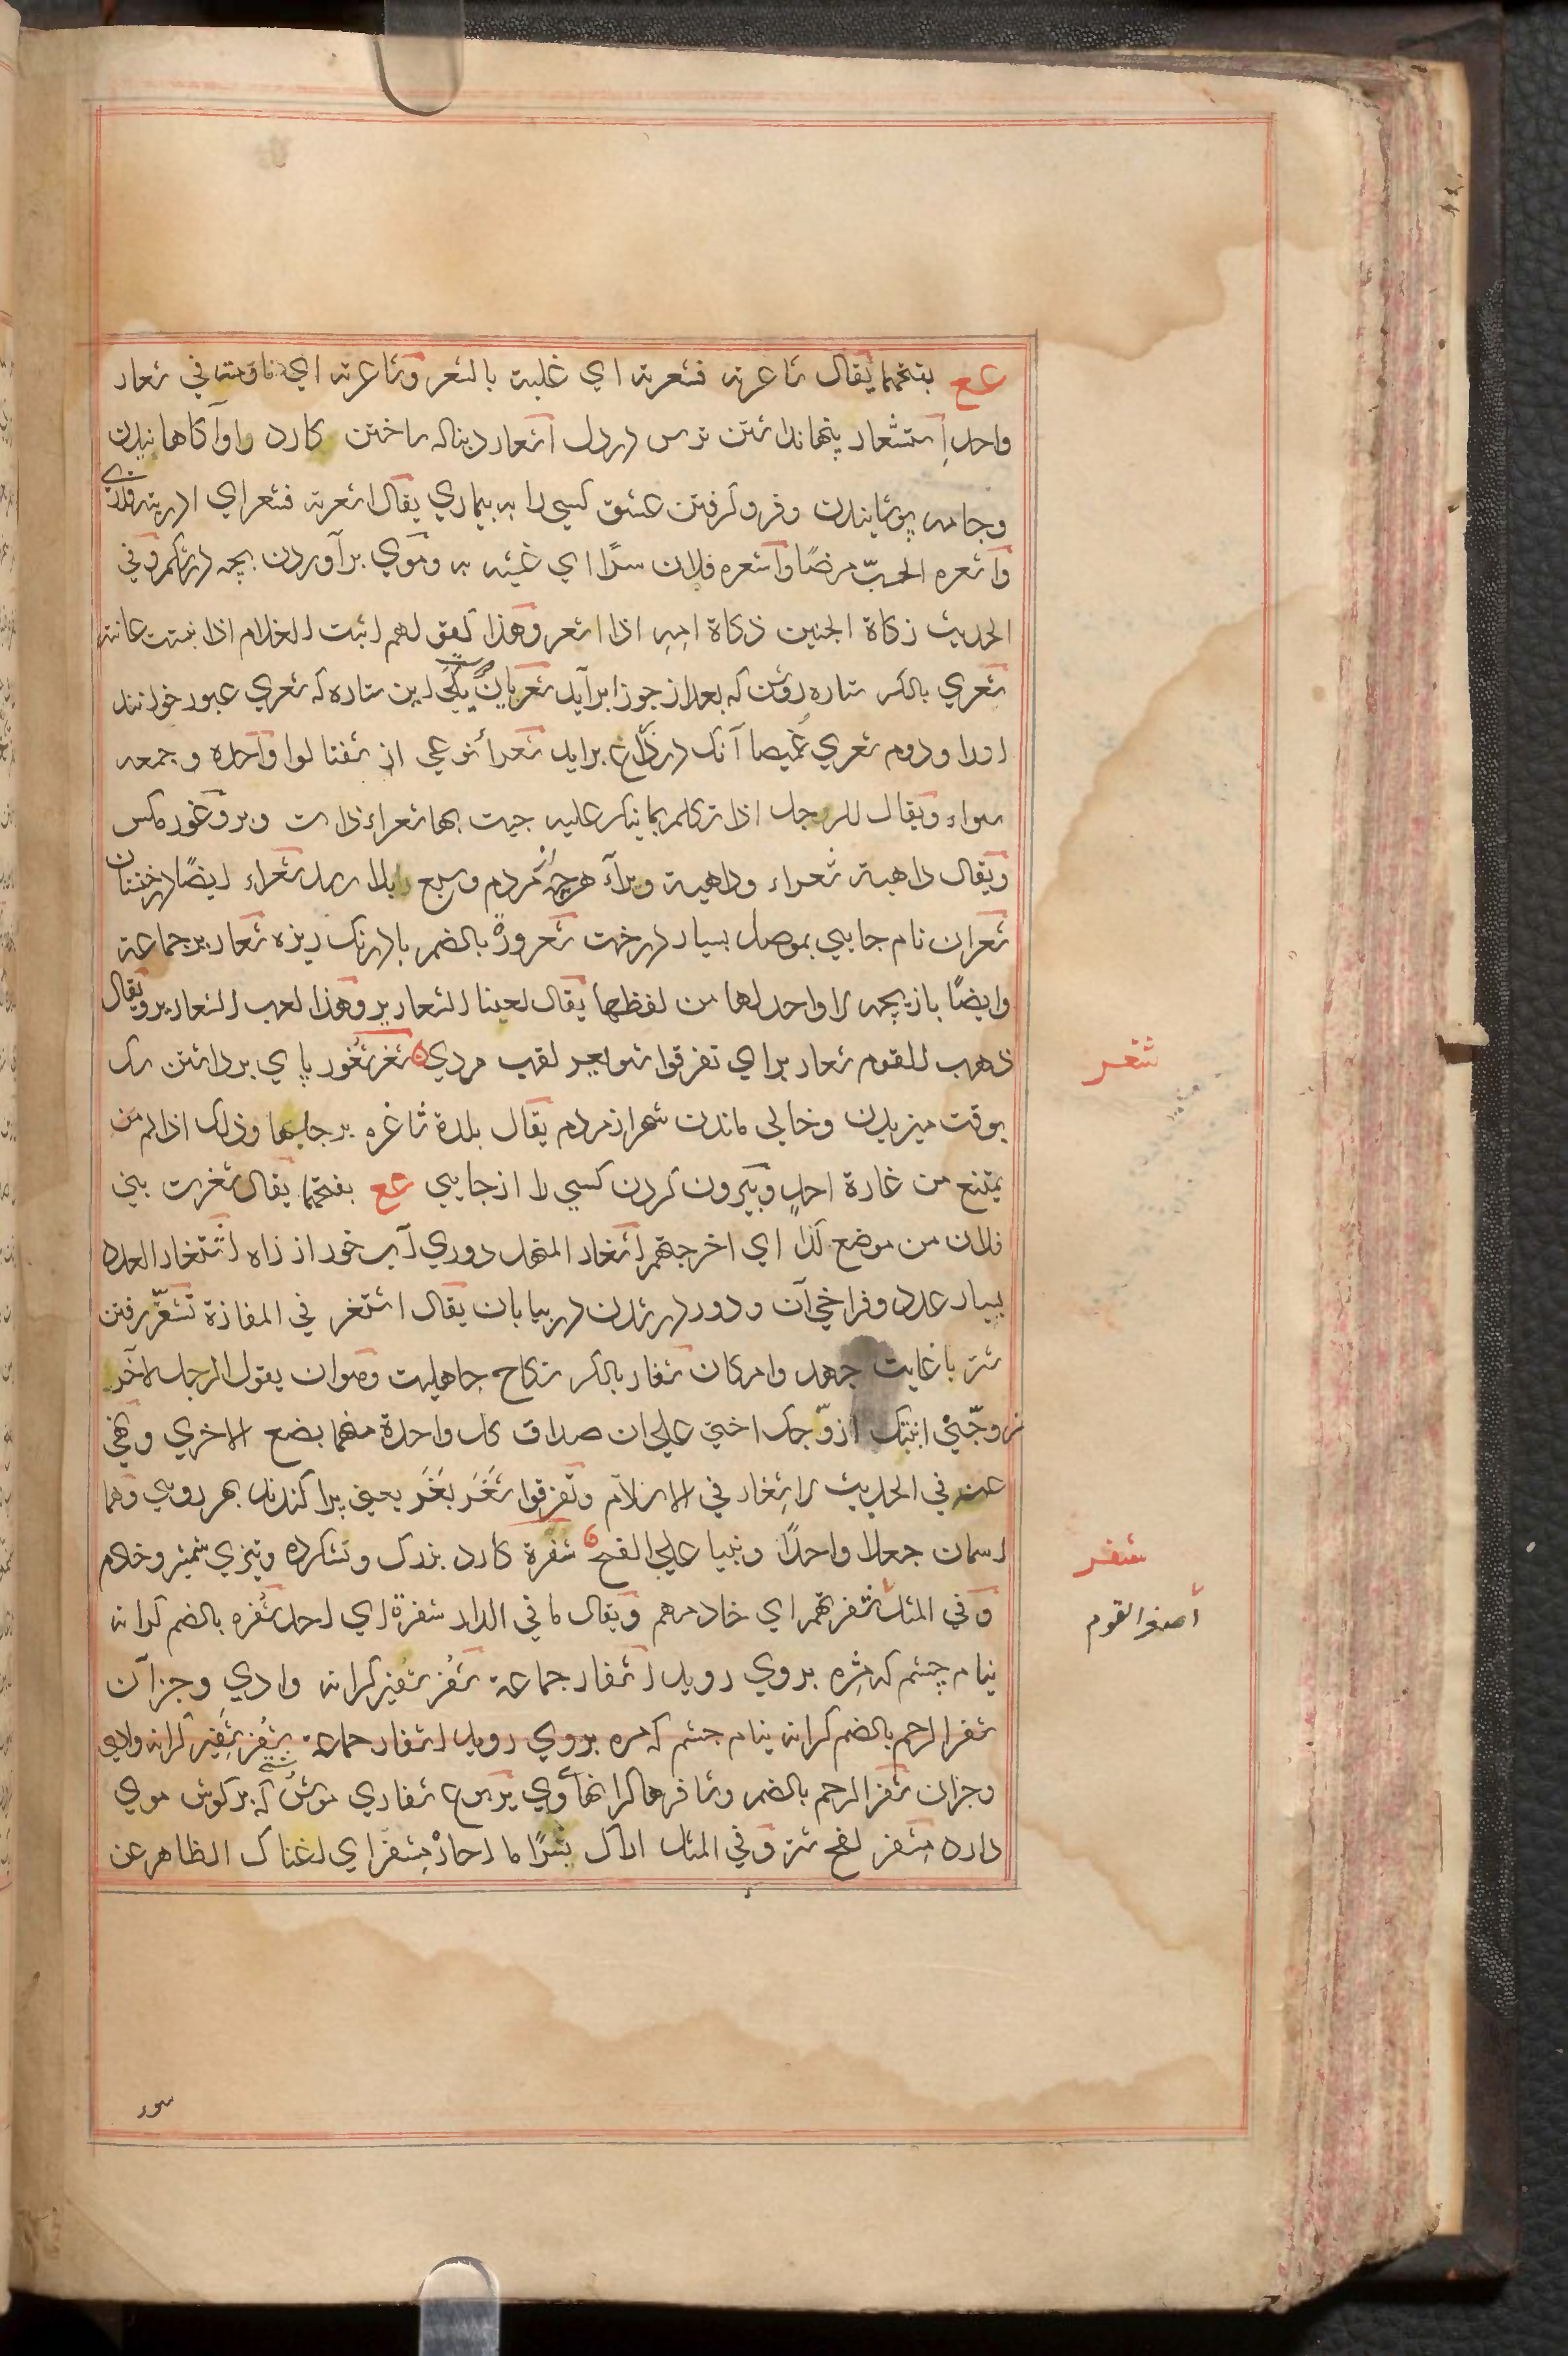 عع بفتحهما يقال شاعرته فشعرته اي غلبته بالشعر وشاعرته اي ناومته في شعار
واحد اِستشعار پنهان داشتن ترس در دل اشعار دنباله ساختن كارد را وآگاهانيدن
وجامه پوشانيدن وفرو گرفتن عشق كسي را به بيماري يقال اشعرته فشعر اي ادريته فدري
وأشعره الحبّ مرضًا وأشعره فلان سرًّا اي غشيه به وموي برآوردن بچه در شكم وفي
الحديث زكاة الجنين ذكاة امهِ اذا اشعر وهذا كقولهم انبت الغلام اذا نبتت عانته
شعري بالكسر ستاره روشن كه بعد از جوزا برآيد شعريان يكي اين ستاره كه شعري عبور خوانند
اورا ودوم شعري غُميصا آنك در ذراع برايد شعراء نوعي از شفتالوا واحده وجمعه
سواء ويقال للرجل اذا تكلم بما ينكر عليه جيت بها شعراء ذات وبر وغور مكس
ويقال داهية شعراء وداهية وبرآء هرچه از مردم وسبع را بدا رسد شعراء ايضًا درختان
شعران نام جايي بموصل بسيار درخت شعرورةٌ بالضم بادرنك ريزه شعارير جماعة
وايضًا بازيچه لا واحد لها من لفظها يقال لعبنا الشعارير وهذا لعب الشعارير ويقال
ذهب القوم شعارير اي تفرقوا شويعر لقب مردي ۵ شغر شُغور پاي برداشتن سك
بوقت ميزيدن وخالي ماندن شهر از مردم يقال بلدة شاغره برجلها وذلك اذا لم من
يمتنع من غارة احدٍ وبيرون كردن كسي را از جايي عع بفتحهما يقال شغرت بني
فلان من موضع كذا اي اخرجتهم اشغار المنهل دوري آب خور از راه اشتغار العدد
بسيار عدد وفراخي آن ودور در شدن در بيابان يقال اشتغر في المفازة تشغّر رفتن
شتر با غايت جهد وامكان شغار بالكسر نكاح جاهليت وهو ان يقول الرجل لآخر
زوجّني ابنتك ازوّجك اختي علي ان صداق كل واحدة منهما بضع الاخري ونهي
عنه في الحديث لا شِغار في الاسلام وتفرقوا شَغَر بَغَر يعني پراكندند بهر رويي وهما
اسمان جعلا واحدًا وبنيا علي الفتح ۵ شفرة كارد بزرك ونشكرده وتيزي شمشير وخادم
وفي المثل شفرتهم اي خادمهم ويقال ما في الدار شفرة اي احد شُفره بالضم كرانه
نيام چشم كه مژه بروي رويد اشفار جماعة شفر شفير كرانه وادي وجز آن
شفر الرحم بالضم كرانه نيام چشم كه مژه بروي رويد اشفار جماعة شفر شفير كرانه وادي
وجز آن شفر الرحم بالضم وشافرها كرانهاء وي يربوع شفاري موش كه بر كوش موي
دارد مشفر لفج شتر وفي المثل اراك بشرًا ما احارْ مشفر اي اغناك الظاهر عن
شغر
شفر
أصغر القوم
سور